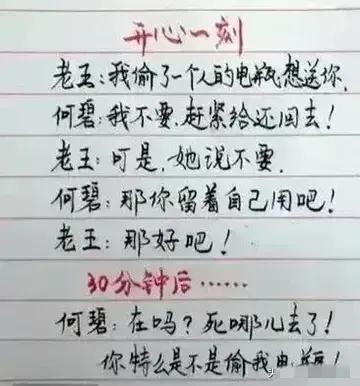 开心一刻
老王:我偷了一个人的电瓶想送你.
何碧:我不要.赶紧给还回去!
老王:可是,她说不要.
何碧:那你留着自己用吧!
老王:那好吧!
30分钟后……
何碧:在吗?死哪儿去了!
你特么是不是偷我电瓶!